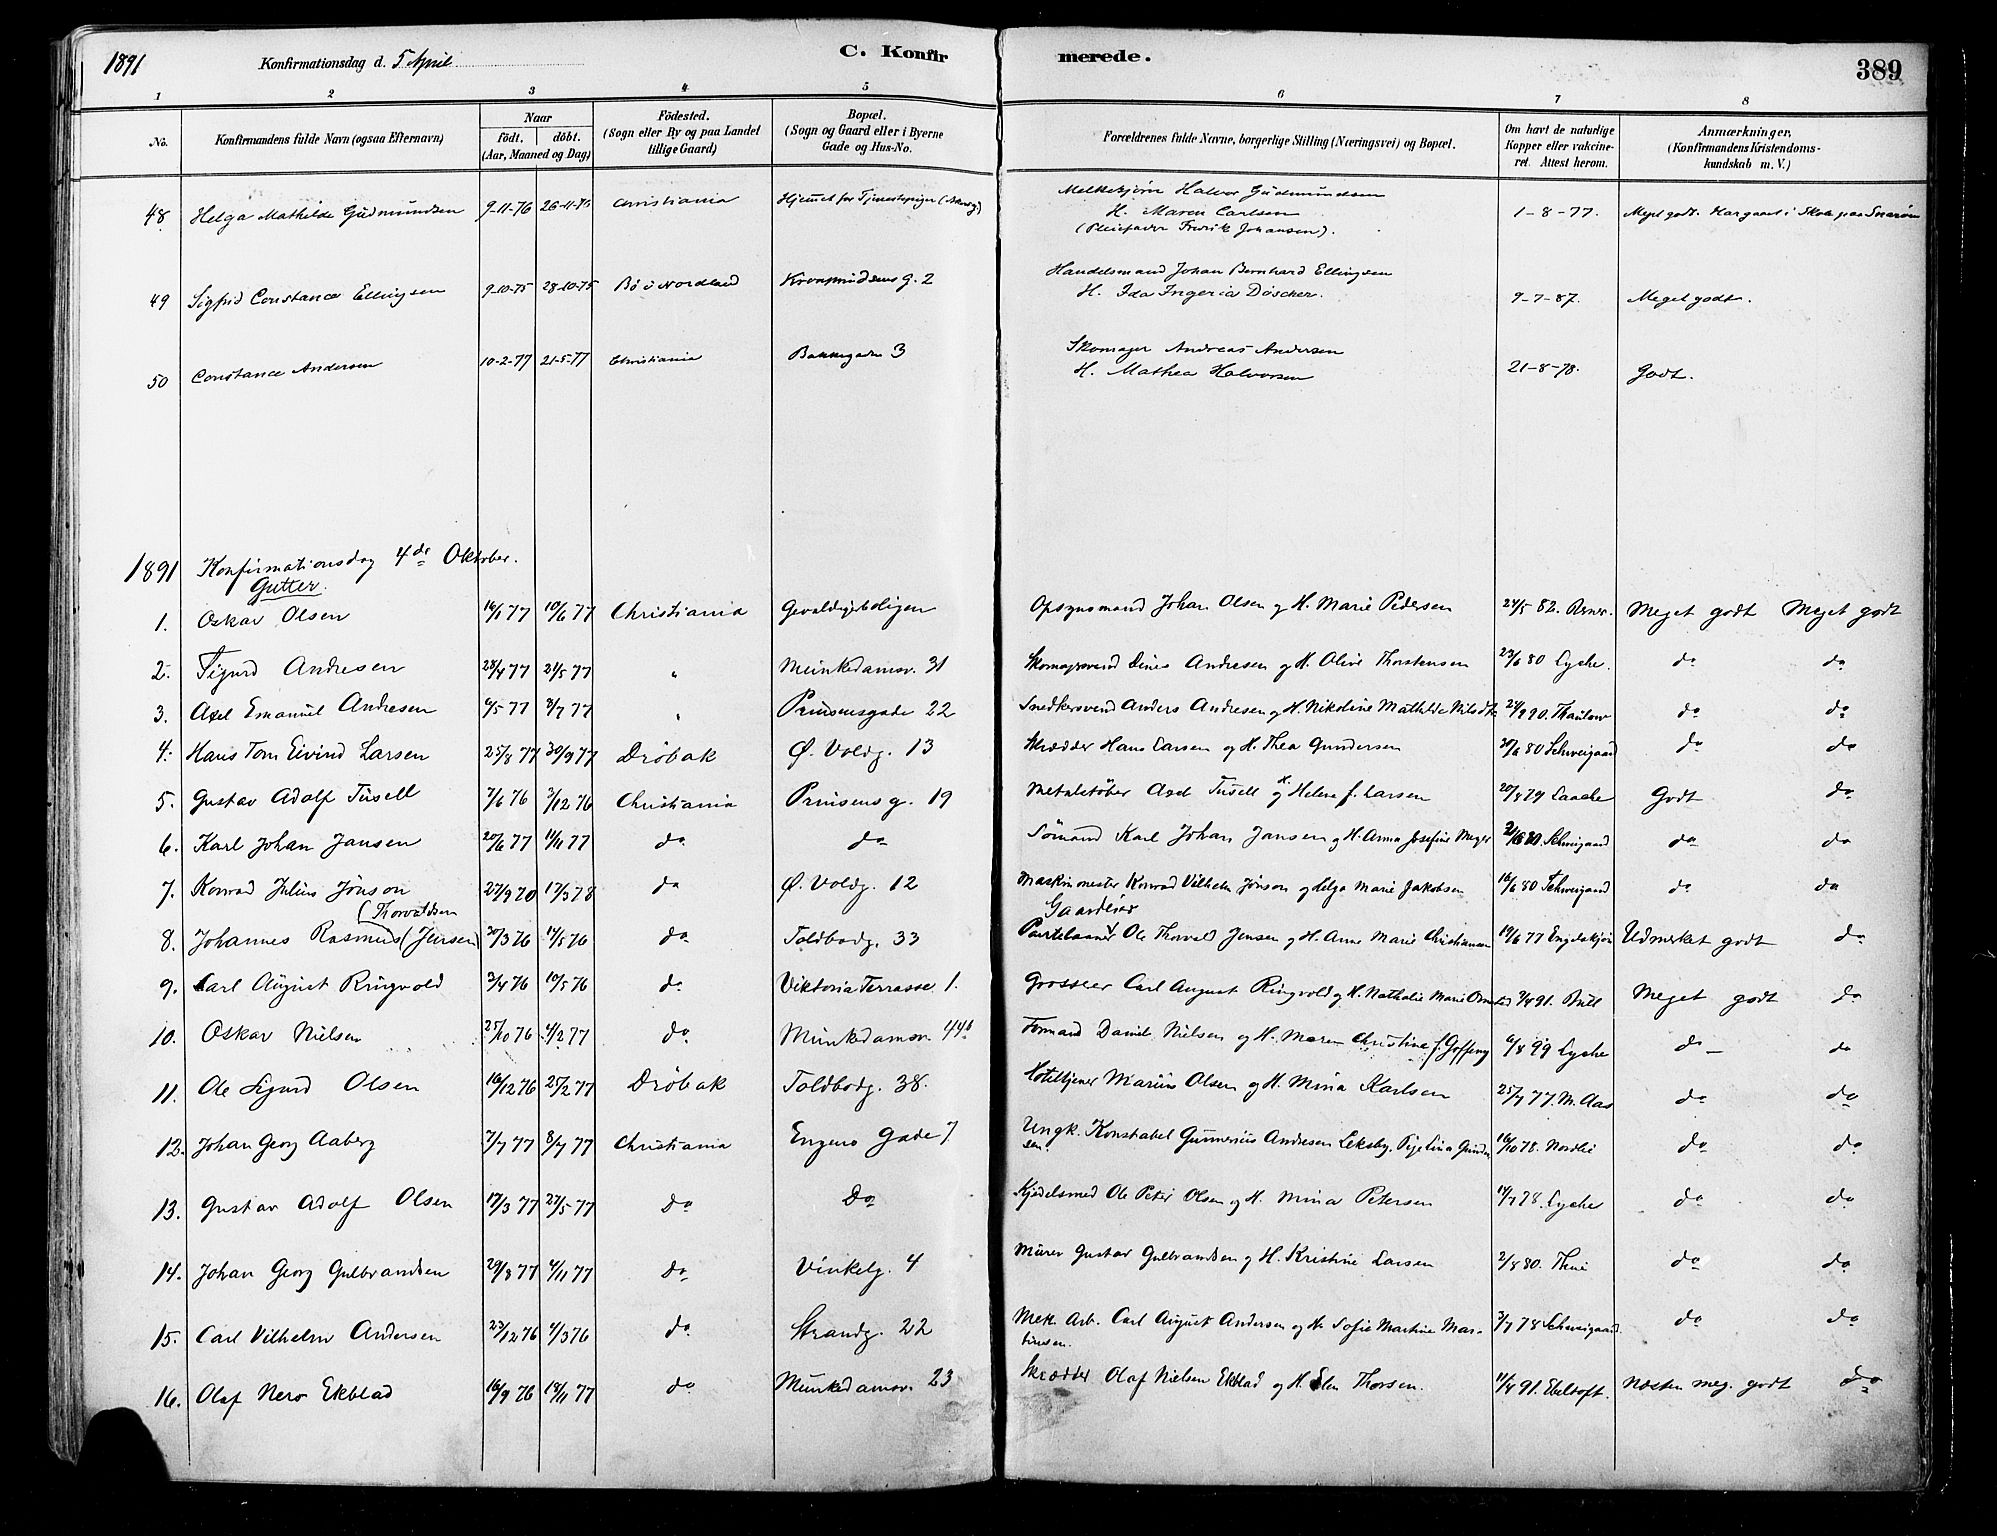 1891 Konfirmationsdag d. 5 April C. Konfirmerede. 389
1 2 3 4 5 6 7 8
No. Konfirmandens fulde Navn (ogsaa Efternavn) Naar født. døbt. (Aar, Maaned og Dag) Fødested. (Sogn eller By og paa Landet tillige Gaard) Bopæl. (Sogn og Gaard eller i Byerne Gade og Hus-No. Forældrenes fulde Navne, borgerlige Stilling (Næringsvei) og Bopæl. Om havt de naturlige Kopper eller vakcineret. Attest herom. Anmærkninger, (Konfirmandens Kristendomskundskab m. V.)
48 Helga Mathilde Gudmundsen 9-11-76 26-11-76 Christiania Hjemmet for Tjenestepiger Halvor Gudmundsen
H. Maren Carlsen 1-8-77. Meget godt. i Skole paa Snarøen
(Pleiefader Fredrik Johansen).
49 Sigfrid Constance Ellingsen 9-10-75 28-10-75 Bø i Nordland G. 2 Handelsmand Johan Bernhard Ellingsen
H. Ida Ingeria Döscher. 9-7-87. Meget godt.
50 Constance Andersen 10-2-77 21-5-77 Christiania Bakkegaden 3 Skomager Andreas Andersen
H. Mathea Halvorsen 21-8-78. Godt.
1891 Konfirmationsdag 4de Oktober.
Gutter.
1. Oskar Olsen 16/1 77 10/6 77 Christiania Gevaldigerboligen Opsynsmand Johan Olsen og H. Marie Pedersen 24/5 82. Meget godt Meget godt
2. Sigurd Andresen 28/4 77 21/5 77 " Munkedamsv. 31 Skomagersvend Andresen og H. Olive Thorstensen 23/6 80 Lyche. do do
3. Axel Emanuel Andresen 4/5 77 8/7 77 " Prinsensgade 22 Snedkersvend Anders Andresen og H. Nikoline Mathilde 24/9 90. Thaulow do do
4. Hans Tom Eivind Larsen 25/8 77 30/9 77 Drøbak Ø. Voldg. 13 Skrædder Hans Larsen og H. Thea Gundersen 80 Schweigaard do do
5. Gustav Adolf Tusell 7/6 76 3/12 76 Christiania Prinsensg. 19 Metalstøber Axel Tusell og H. Helene f. Larsen 20/8 79 Laache Godt do
6. Karl Johan Jansen 20/6 77 11/11 77 do do Sømand Karl Johan Jansen og H. Anna Josefine Meyer Schweigaard do do
7. Konrad Julius Jönson 27/9 70 17/3 78 do Ø. Voldg. 12 Maskinmester Konrad Vilhelm Jönson og Helga Marie Jakobsen 16/6 80 Schweigaard do do
(Thorvaldsen Gaardeier
8. Johannes Rasmus (Jensen) 30/3 76 14/5 76 do Toldbodg. 33 Ole Thorvald Jensen og H. Anne Marie Christiansen 19/6 77 Udmerket godt do
9. Carl August Ringvold 3/4 76 10/5 76 do Viktoria Terrasse 1. Grosserer Carl August Ringvold og H. Nathalie Marie 91. Meget godt do
10. Oskar Nielsen 25/10 76 4/2 77 do Munkedamsv. 44b Formand Daniel Nielsen og H. Maren Christine 6/8 99 Lyche do do
11. Ole Sigurd Olsen 16/12 76 25/2 77 Drøbak Toldbodg. 38. Hoteltjener Marius Olsen og H. Mina Karlsen 25/7 77. M. Aas do do
12. Johan Georg Aaberg 7/7 77 8/7 77 Christiania Engens Gade 7 Ungk. Konstabel Gunnerius Andresen Leksby, Pige Lina Gundersen 16/10 78. Nordlie do do
13. Gustav Adolf Olsen 17/3 77 27/5 77 do Do Kjedelsmed Ole Peter Olsen og H. Mina Petersen 78. Lyche do do
14. Johan Georg Gulbrandsen 29/8 77 4/11 77 do Vinkelg. 4 Murer Gustav Gulbrandsen og H. Kristine Larsen 2/8 80. do do
15. Carl Vilhelm Andersen 23/12 76 4/3 76 do Strandg. 22 Mek. Arb. Carl August Andersen og H. Sofie Martine Martinsen. 3/7 78 Schweigaard do do
16. Olaf Nero Ekblad 16/9 76 18/11 77 do Munkedamsv. 23 Skrædder Olaf Nielsen Ekblad og H. Elen Thorsen. 11/4 91. Ebeltoft. Næsten meg. godt do